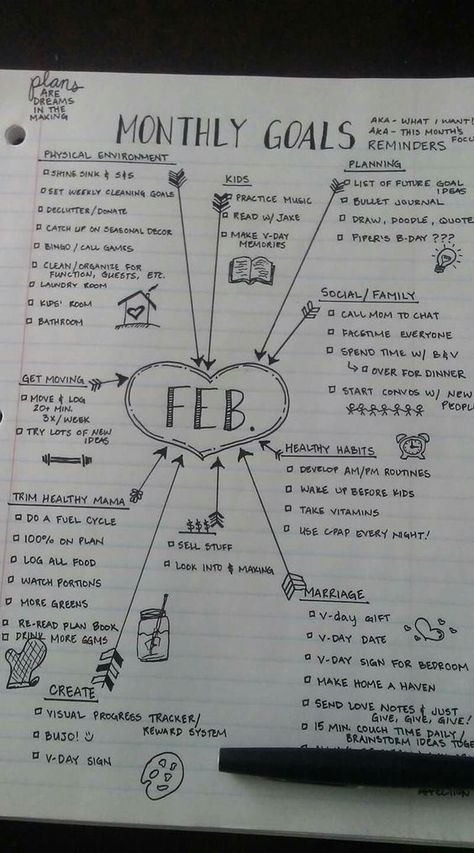 plans
ARE
DREAMS
IN THE
MAKING
MONTHLY GOALS
AKA - WHAT I WANT!
AKA - THIS MONTH'S
FOCUS
REMINDERS
PHYSICAL ENVIRONMENT
SHINE SINK & S&S
SET WEEKLY CLEANING GOALS
DECLUTTER/DONATE
CATCH UP ON SEASONAL DECOR
BINGO/CALL GAMES
CLEAN/ORGANIZE FOR
FUNCTION, GUESTS, ETC.
LAUNDRY ROOM
KIDS' ROOM
BATHROOM
KIDS
PRACTICE MUSIC
READ W/ JAKE
MAKE V-DAY
MEMORIES
PLANNING
LIST OF FUTURE GOAL
IDEAS
BULLET JOURNAL
DRAW, DOODLE, QUOTE
PIPER'S B-DAY ???
SOCIAL/FAMILY
CALL MOM TO CHAT
FACETIME EVERYONE
SPEND TIME W/ B&V
OVER FOR DINNER
START CONVOS W/ NEW
PEOPLE
GET MOVING
MOVE & LOG
20+ MIN.
3X/WEEK
TRY LOTS OF NEW
IDEAS
FEB.
HEALTHY HABITS
DEVELOP AM/PM ROUTINES
WAKE UP BEFORE KIDS
TAKE VITAMINS
USE C-PAP EVERY NIGHT!
TRIM HEALTHY MAMA
DO A FUEL CYCLE
100% ON PLAN
LOG ALL FOOD
WATCH PORTIONS
MORE GREENS
RE-READ PLAN BOOK
DRINK MORE GGMS
$$$
SELL STUFF
LOOK INTO $ MAKING
MARRIAGE
V-day GIFT
V-DAY DATE
V-DAY SIGN FOR BEDROOM
MAKE HOME A HAVEN
SEND LOVE NOTES & JUST
GIVE, GIVE, GIVE!
15 MIN. COUCH TIME DAILY/
BRAINSTORM IDEAS TOGE
CREATE
VISUAL PROGRESS TRACKER/
REWARD SYSTEM
BUJO!
V-DAY SIGN